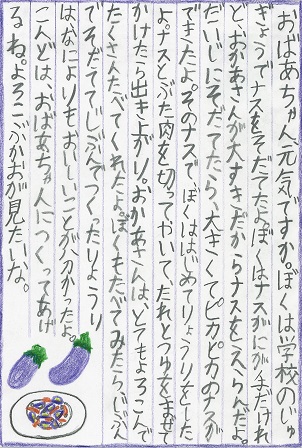 おばあちゃん、元気ですか。ぼくは学校のじゅ
ぎょうでナスをそだてたよ。ぼくはナスがにが手だけれ
ど、おかあさんが大すきだからナスをえらんだよ。
だいじにそだてたら、大きくてピカピカのナスが
できたよ。そのナスで、ぼくははじめてりょうりをした
よ。ナスとぶた肉を切ってやいてたれとつゆをまぜて
かけたら出き上がり。おかあさんは、とてもよろこんで
たくさんたべてくれたよ。ぼくもたべてみたら、じぶ
でそだててじぶんでつくったりょうり
はなによりもおいしいことが分かったよ。
こんどは、おばあちゃんにつくってあげ
るね。よろこぶかおが見たいな。